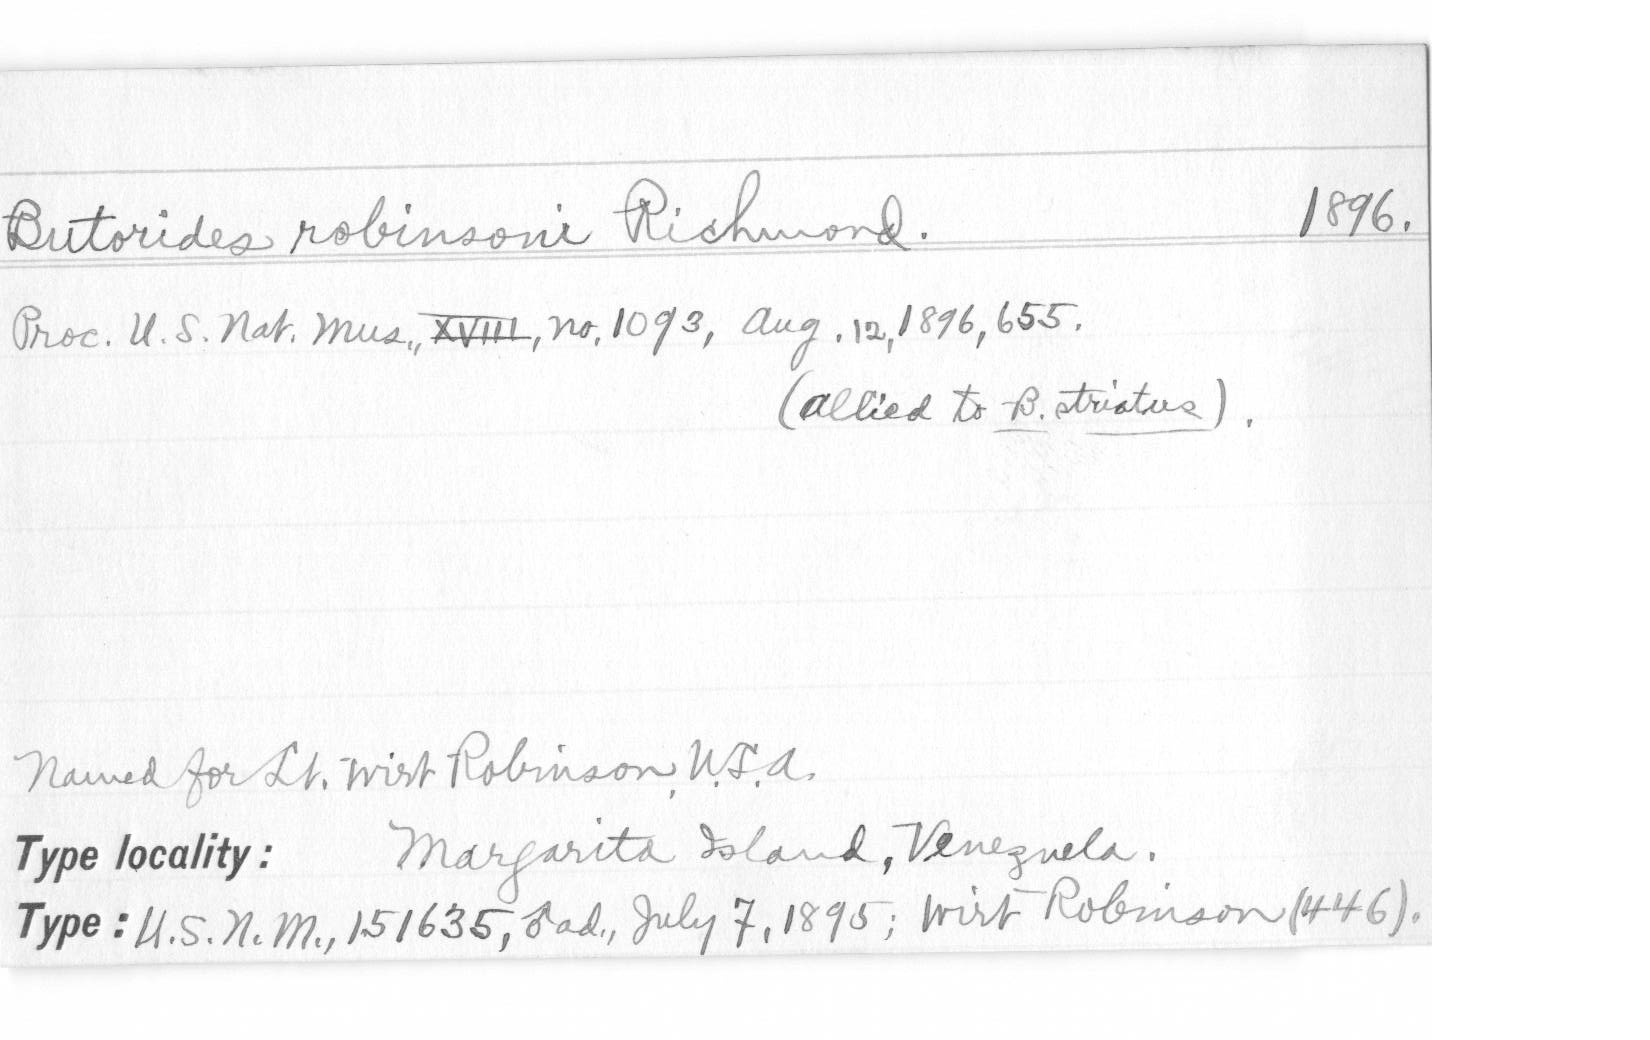 Butorides robinsoni Richmond. 1896.
Proc. U.S. Nat. Mus., XVIII, no. 1093, Aug. 12, 1896, 655.
(allied to B. striatus).
Named for Lt. Wirt Robinson, U.S.A.
Type locality: Margarita Island, Venezuela.
Type: U.S.N.M., 151635, ♂ ad., July 7, 1895; Wirt Robinson (446).